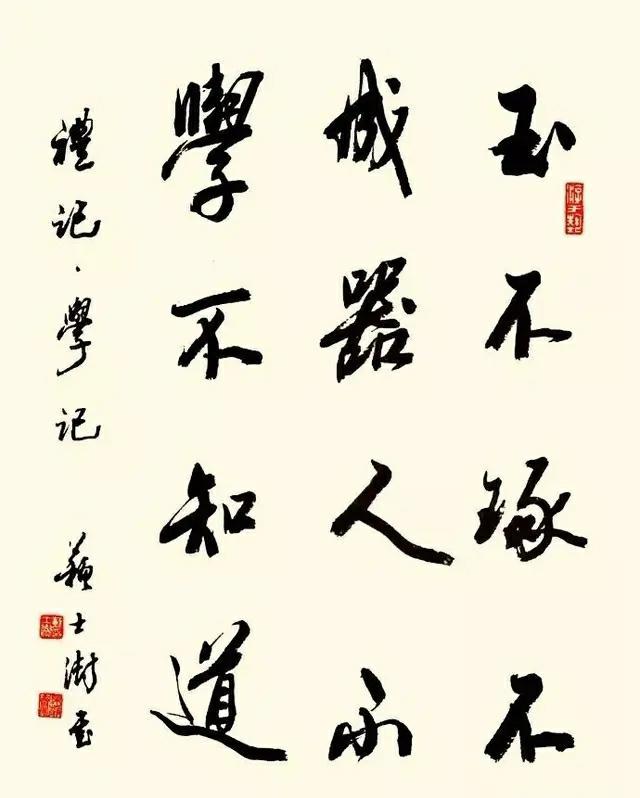 玉不琢不
成器人不
學不知道
禮記·學記 蘇士澍書
游于藝